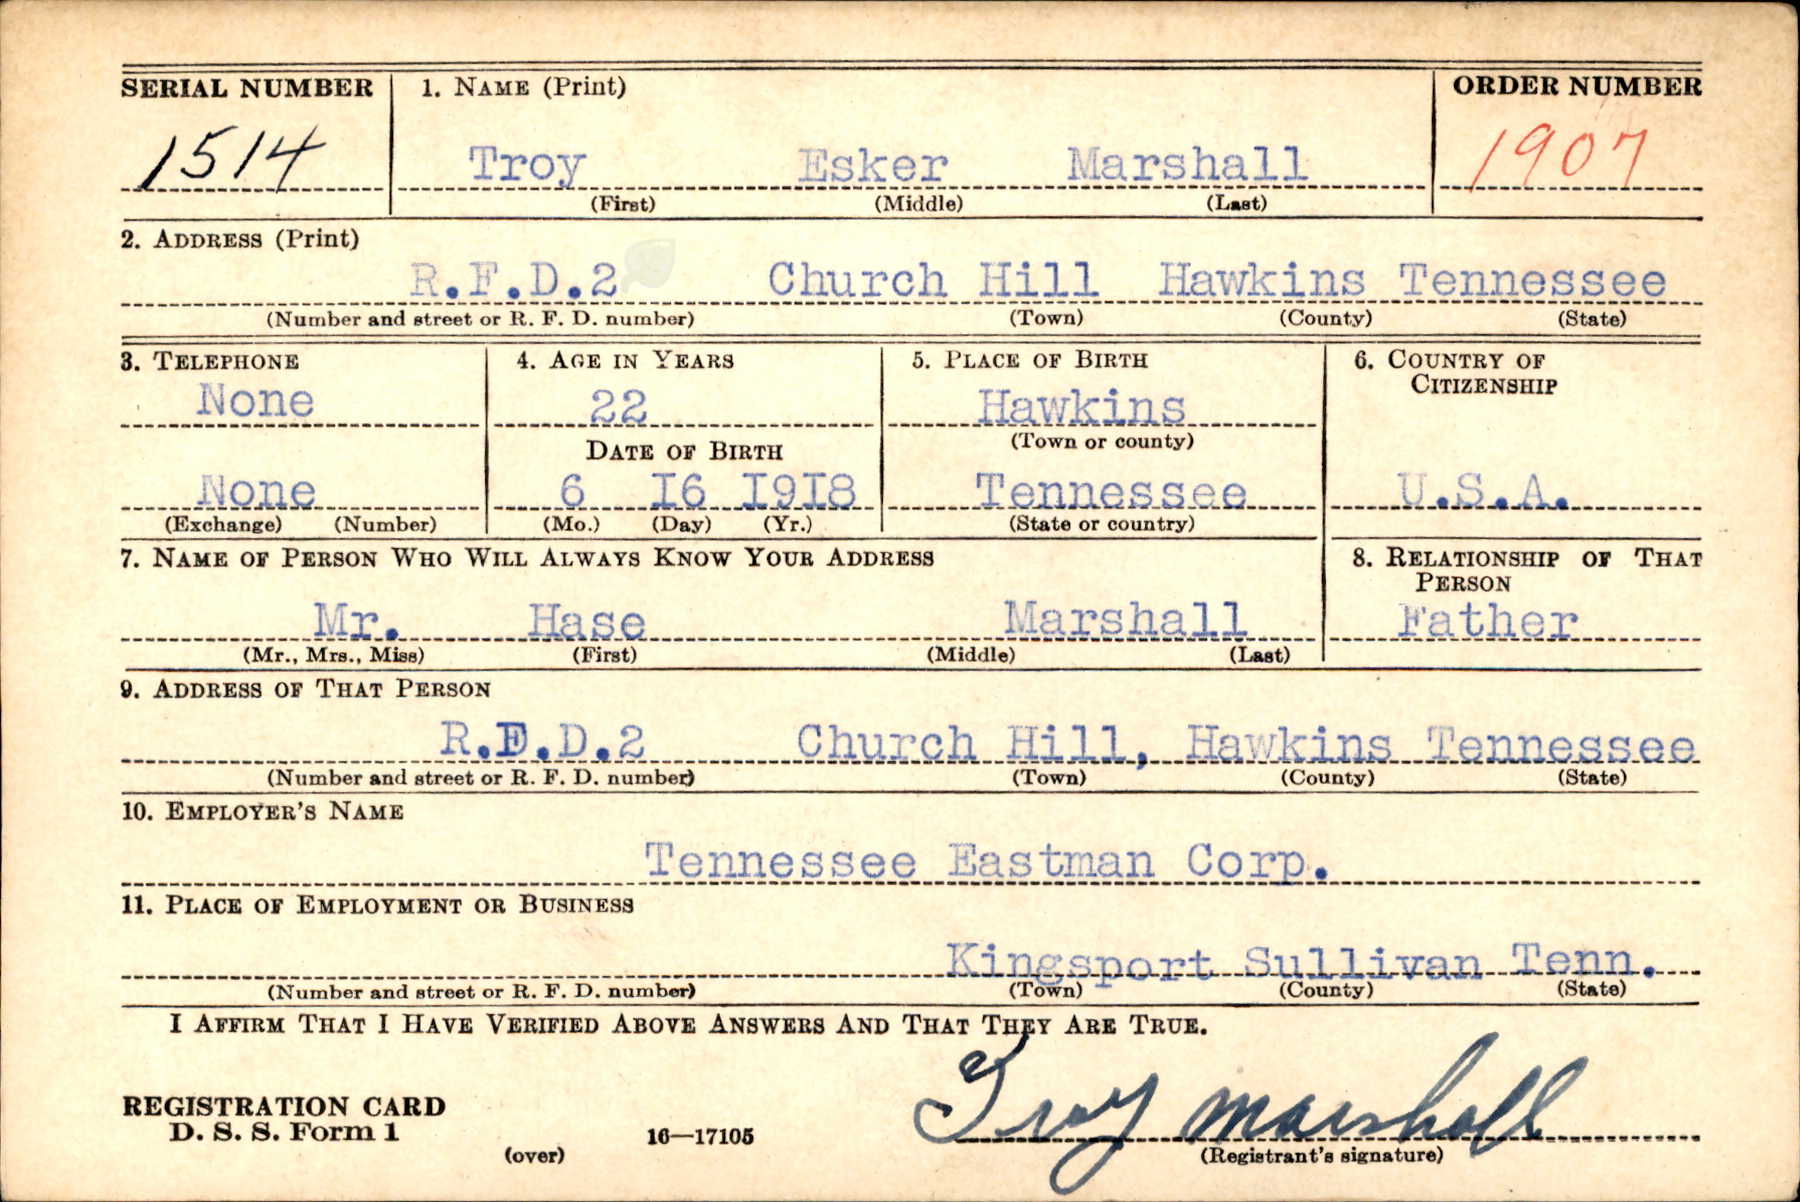 SERIAL NUMBER 1. NAME (Print) ORDER NUMBER
1514 Troy Esker Marshall 1907
(First) (Middle) (Last)
2. ADDRESS (Print)
R.F.D.2 Church Hill Hawkins Tennessee
(Number and street or R. F. D. number) (Town) (County) (State)
3. TELEPHONE 4. AGE IN YEARS 5. PLACE OF BIRTH 6. COUNTRY OF
CITIZENSHIP
None 22 Hawkins
(Town or county)
DATE OF BIRTH
None 6 I6 I9I8 Tennessee U.S.A.
(Exchange) (Number) (Mo.) (Day) (Yr.) (State or country)
7. NAME OF PERSON WHO WILL ALWAYS KNOW YOUR ADDRESS 8. RELATIONSHIP OF THAT
PERSON
Mr. Hase Marshall Father
(Mr., Mrs., Miss) (First) (Middle) (Last)
9. ADDRESS OF THAT PERSON
R.F.D.2 Church Hill, Hawkins Tennessee
(Number and street or R. F. D. number) (Town) (County) (State)
10. EMPLOYER'S NAME
Tennessee Eastman Corp.
11. PLACE OF EMPLOYMENT OR BUSINESS
Kingsport Sullivan Tenn.
(Number and street or R. F. D. number) (Town) (County) (State)
I AFFIRM THAT I HAVE VERIFIED ABOVE ANSWERS AND THAT THEY ARE TRUE.
Troy Marshall
REGISTRATION CARD
D. S. S. Form 1
(over) 16—17105 (Registrant's signature)